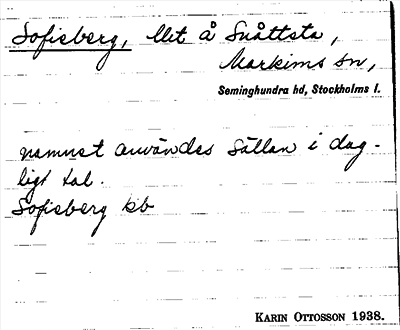 Sofisberg, llit å Snåttsta,
Markims sn,
Seminghundra hd, Stockholms l.
namnet användes sällan i dag-
ligt tal.
Sofisberg kb
KARIN OTTOSSON 1938.